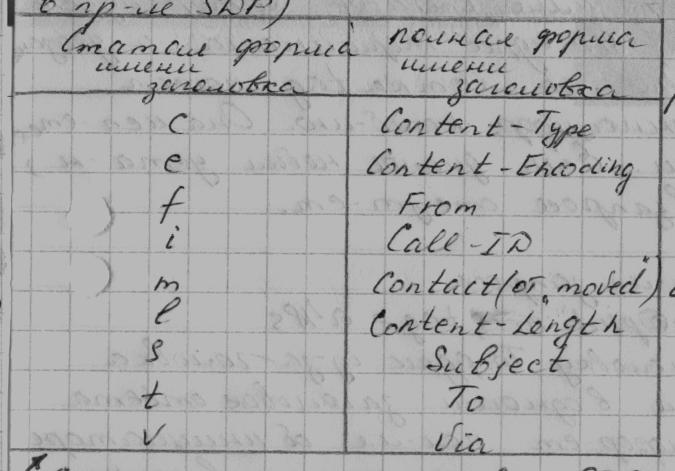 в пр-ле SDP)
Сжатая форма имени заголовка	полная форма имени заголовка
c	Content-Type
e	Content-Encoding
f	From
i	Call-ID
m	Contact (от "moved")
l	Content-Length
s	Subject
t	To
v	Via